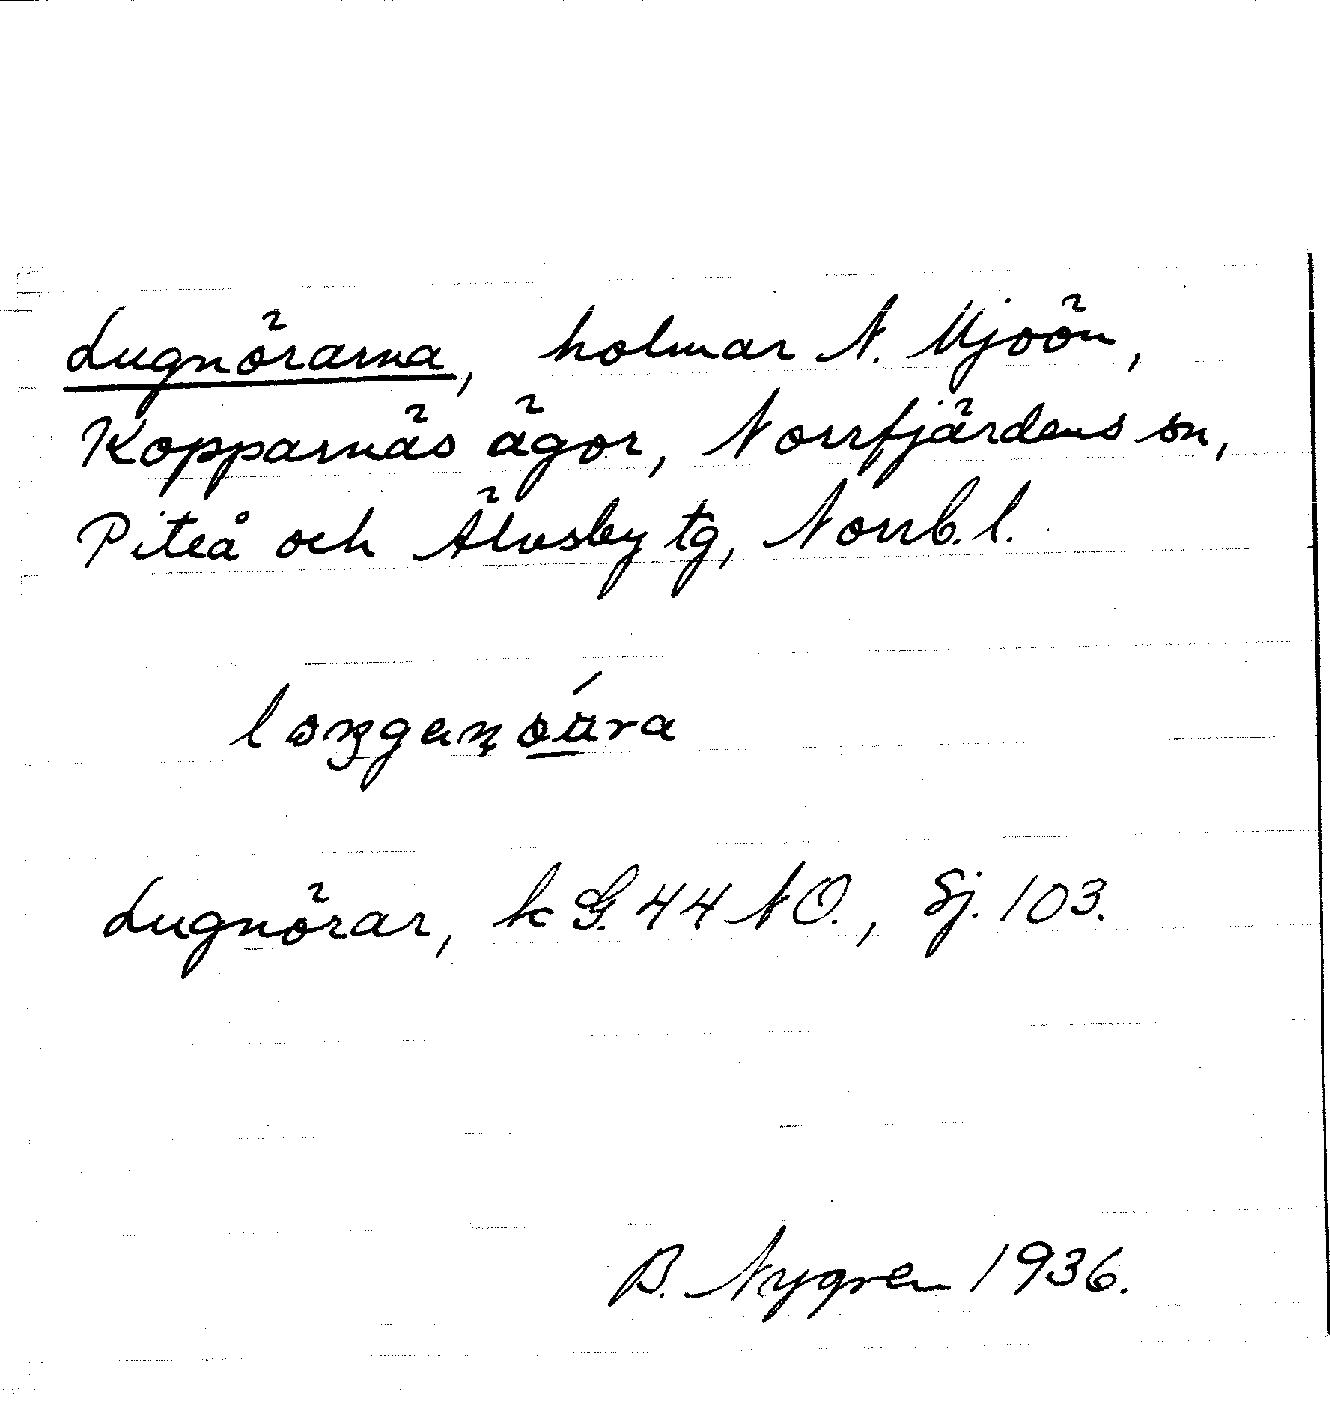 Lugnörarna, holmar N. Mjoön,
Kopparnäs ägor, Norrfjärdens sn,
Piteå och Älvsby tg, Norrb. l.
Lugnörar, k G. 44 NO., Sj. 103.
B. Nygren 1936.